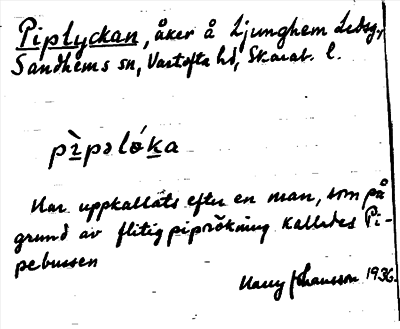 Piplyckan, åker å Ljunghem Ledsg.,
Sandhems sn, Vartofta hd, Skarab. l.
pìpəló̱ka
Har uppkallats efter en man, som på
grund av flitig piprökning kallades Pi-
pebussen
Harry Johansson 1936.